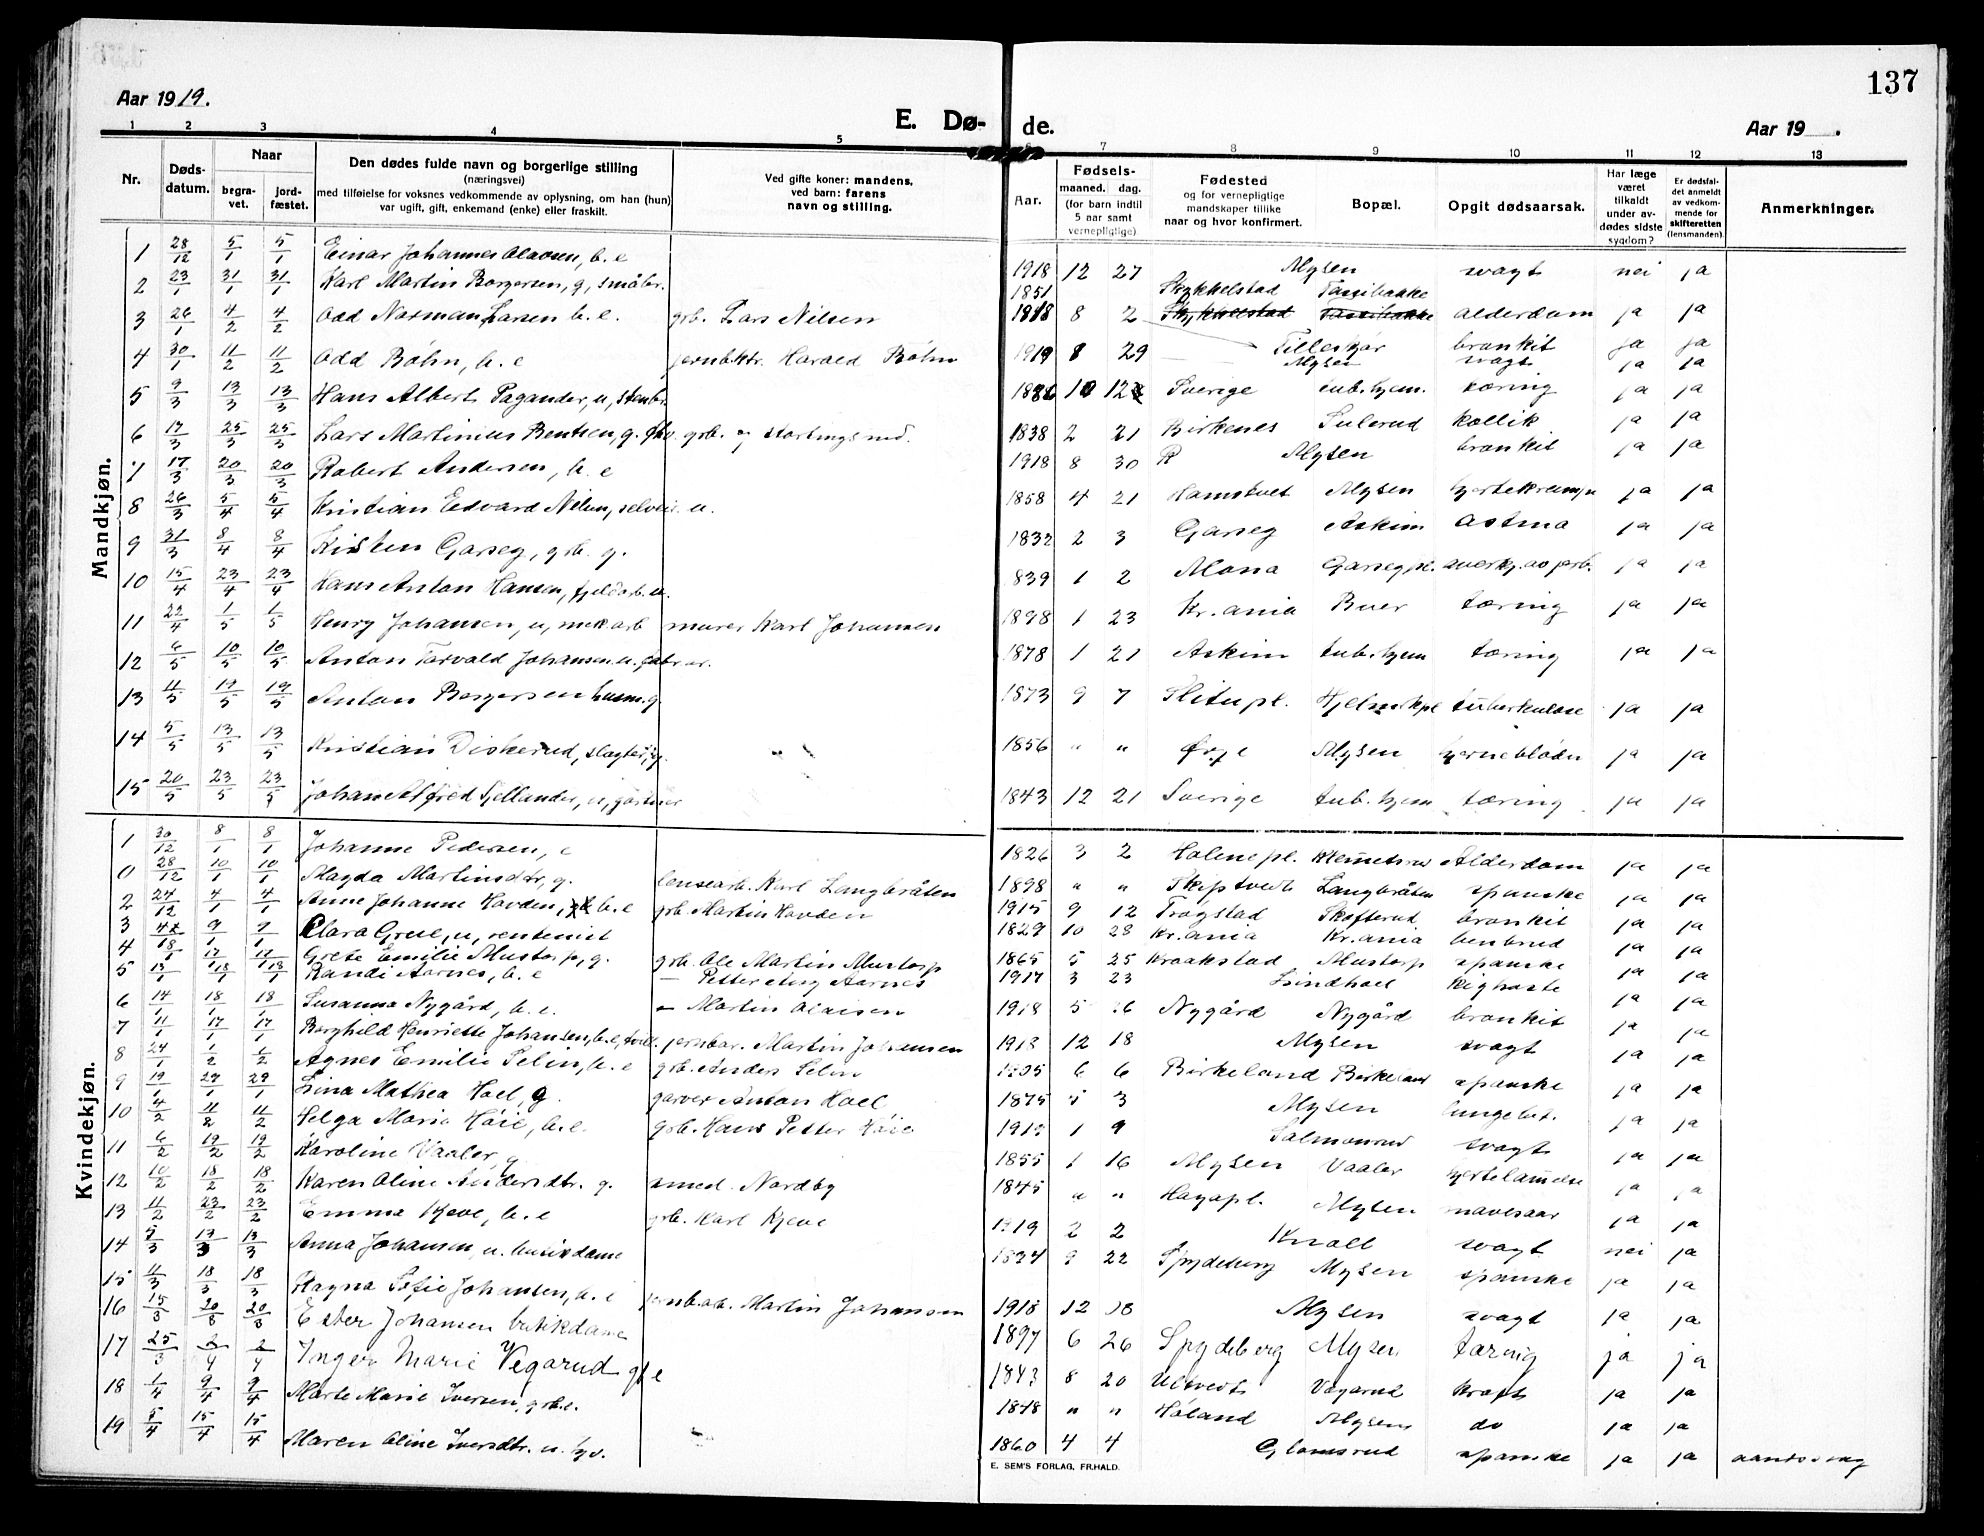 137
Aar 1919.
E. Dø- de.
Aar 19 .
1 2 3 4 5 6 7 8 9 10 11 12 13
Nr.
Døds-datum.
Naar
begra-vet.
jord-fæstet.
Den dødes fulde navn og borgerlige stilling
(næringsvei)
med tilføielse for voksnes vedkommende av oplysning, om han (hun)
var ugift, gift, enkemand (enke) eller fraskilt.
Ved gifte koner: mandens,
ved barn: farens
navn og stilling.
Aar.
Fødsels-
maaned. dag.
(for barn indtil
5 aar samt
vernepligtige)
Fødested
og for vernepligtige
mandskaper tillike
naar og hvor konfirmert.
Bopæl.
Opgit dødsaarsak.
Har læge
været
tilkaldt
under av-
dødes sidste
sygdom?
Er dødsfal-
det anmeldt
av vedkom-
mende for
skifteretten
(lensmanden).
Anmerkninger.
Mandkjøn.
1 28/12 5/1 5/1 Einar Johannes Olavsen, b. e 1918 12 27 Mysen svagt nei ja
2 23/1 31/1 31/1 Karl Martin Borgersen, g, småbr. 1851 Skykkelstad Tassibakke
3 26/1 4/2 4/2 Odd Norman Larsen b. e. grb. Lars Nilsen 1918 8 2 alderdom ja ja
4 30/1 11/2 11/2 Odd Bøhn, b. e jernb.ktr. Harald Bøhn 1919 8 29 Tilleskjør bronkit ja ja
Mysen svagt ja ja
5 9/3 13/3 13/3 Hans Albert Pagander, u, stenbr. 1886 10 12 Sverige tub. hjem. tæring ja ja
6 17/3 25/3 25/3 Lars Martinius Bentsen, g. fhv. grb. og stortingsmd. 1838 2 21 Birkenes Sulerud kollik ja ja
7 17/3 20/3 20/3 Robert Andersen, b. e 1918 8 30 R Mysen bronkit ja ja
8 26/3 5/4 5/4 Kristian Edvard Nilsen, selveier u. 1858 4 21 Hamstvet Mysen hjertekrampe ja ja
9 31/3 8/4 8/4 Kisten Garseg, grb. g. 1832 2 3 Garseg Askim astma ja ja
10 15/4 23/4 23/4 Hans Anton Hansen, fjeldarb. u. 839 1 2 Mona Garseg pl. ja ja
11 22/4 1/5 1/5 Henry Johansen, u, mek. arb murer Karl Johansen 1898 1 23 Kr.ania Buer tæring ja ja
12 6/5 10/5 10/5 Anton Torvald Johansen u. fabr ar. 1878 1 21 Askim tub. hjem tæring ja ja
13 11/5 19/5 19/5 Anton Borgersen husm. g. 1873 9 7 Slitu pl. Hjelmark pl tuberkulose ja ja
14 5/5 13/5 13/5 Kristian Diskerud, slagter, g. " 1856 " " Ørje Mysen hjerneblødn ja ja
15 20/5 23/5 23/5 Johan Alfred Sjellander, u, gartner 1843 12 21 Sverige tub. hjem tæring ja ja
Kvindekjøn.
1 30/12 8/1 8/1 Johanne Pedersen, e 1826 3 2 Holene pl. Klemetsrud Alderdom ja ja
0 28/12 10/1 10/1 Magda Martinsdtr, g. lensearb. Karl Langbråten 1898 " " Skiptvedt Langbråten spanske ja ja
2 24/12 4/1 4/1 Anne Johanne Havden, b. e grb. Martin Havden 1915 9 12 Trøgstad Skofterud bronkit ja ja
3 9/1 Clara Grue, u, rentenist 1829 10 28 Kr.ania Kr.ania benbrud ja ja
4 18/1 17/1 17/1 Grete Emilie Mustorp, g. grb. Ole Martin Mustorp 1865 5 25 Kraakstad Mustorp spanske ja ja
5 13/1 18/1 18/1 Randi Aarnes, b. e — Petter Aug Aarnes 1917 3 23 Lindhoel kighoste ja ja
6 14/1 18/1 18/1 Susanna Nygård, b. e. — Martin Olaisen 1918 5 26 Nygård Nygård bronkit ja ja
7 11/1 17/1 17/1 Borghild Henriette Johansen, b. e, tvill. jernbar. Martin Johansen 1918 12 18 Mysen svagt ja ja
8 24/1 1/2 1/2 Agnes Emilie Selin, b. e grb. Anders Selin 1905 6 6 Birkeland Birkeland spanske ja ja
9 19/1 29/1 29/1 Lina Mathea Hoel, g. garver Anton Hoel 1875 5 3 Mysen lungebet. ja ja
10 4/2 11/2 11/2 Helga Marie Høie, b. e. grb. Hans Petter Høie 1 9 Salmonrud svagt ja ja
11 6/2 19/2 19/2 Karoline Vaaler, g 1855 1 16 Mysen Vaaler hjertelammelse ja ja
12 10/2 18/2 18/2 Karen Oline Andersdtr. g. smed. Nordby 1845 " " Haga pl. Mysen mavesaar ja ja
13 11/2 23/2 23/2 Emma Kjeve, b. e grb. Karl Kjeve 1919 2 2 Knoll svagt nei ja
14 5/3 13/3 13/3 Anna Johansen, u. butikdame 9 22 Spydeberg Mysen spanske ja ja
15 11/3 18/3 18/3 Ragna Sofie Johansen, b. e jernb.ab. Martin Johansen 1918 12 18 Mysen svagt ja ja
16 15/3 20/3 20/3 Ester Johansen butikdame 1897 6 26 Spydeberg Mysen tæring ja ja
17 25/3 2/4 2/4 Inger Marie Vegarud gb e 1843 8 20 Ultvedt Vegarud kræft ja ja
18 1/4 9/4 9/4 Marte Marie Iversen, grb.e. 1848 " " Høland Mysen do ja ja
19 5/4 15/4 15/4 Maren Oline Iversdtr. u. hv. 1860 4 4 Glomsrud spanske ja ja aandssvag
E. SEM'S FORLAG, FR.HALD.